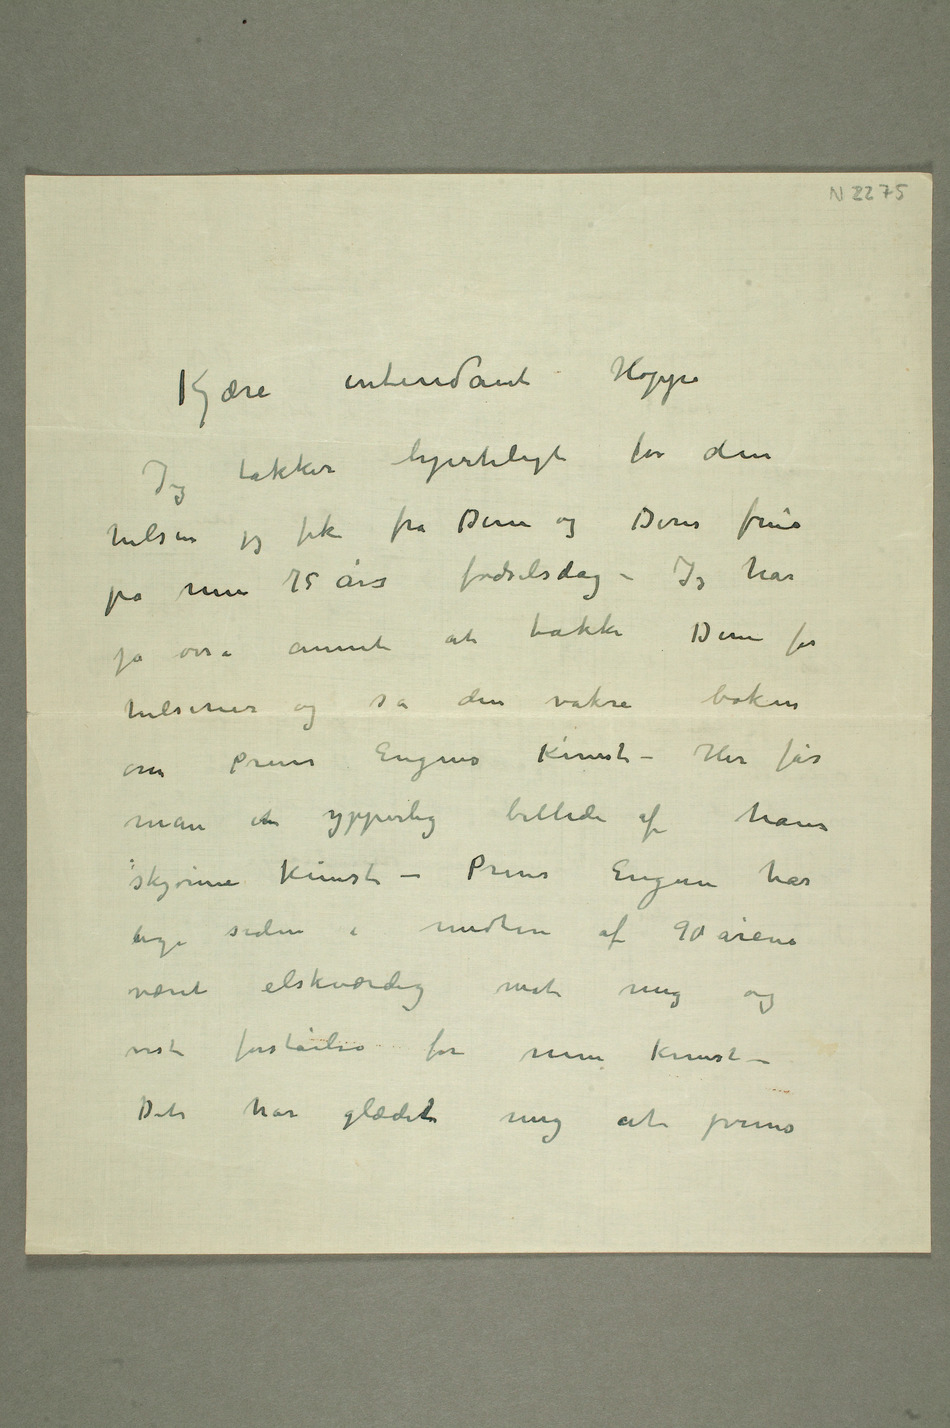 N 2275
Kjære intendant Hoppe
Jeg takker hjerteligt for den
hilsen jeg fik fra Dem og Deres frue
på min 75 års fødselsdag – Jeg har
jo også annet at takke Dem for
hilsener og så den vakre boken
om Prins Eugens Kunst – Her får
man et ypperlig billede af hans
skjønne Kunst – Prins Eugen har
lige siden i midten af 90 årene
været elskværdig mot mig og
vist forståelse for min Kunst –
Det har glædet mig at prins